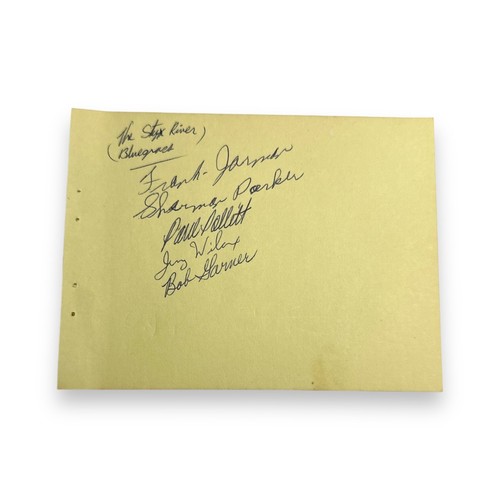 The Styx River)
(Bluegrass
Frank Jarman
Sharman Parker
Paul Pollett
Jerry Wilcox
Bob Garner